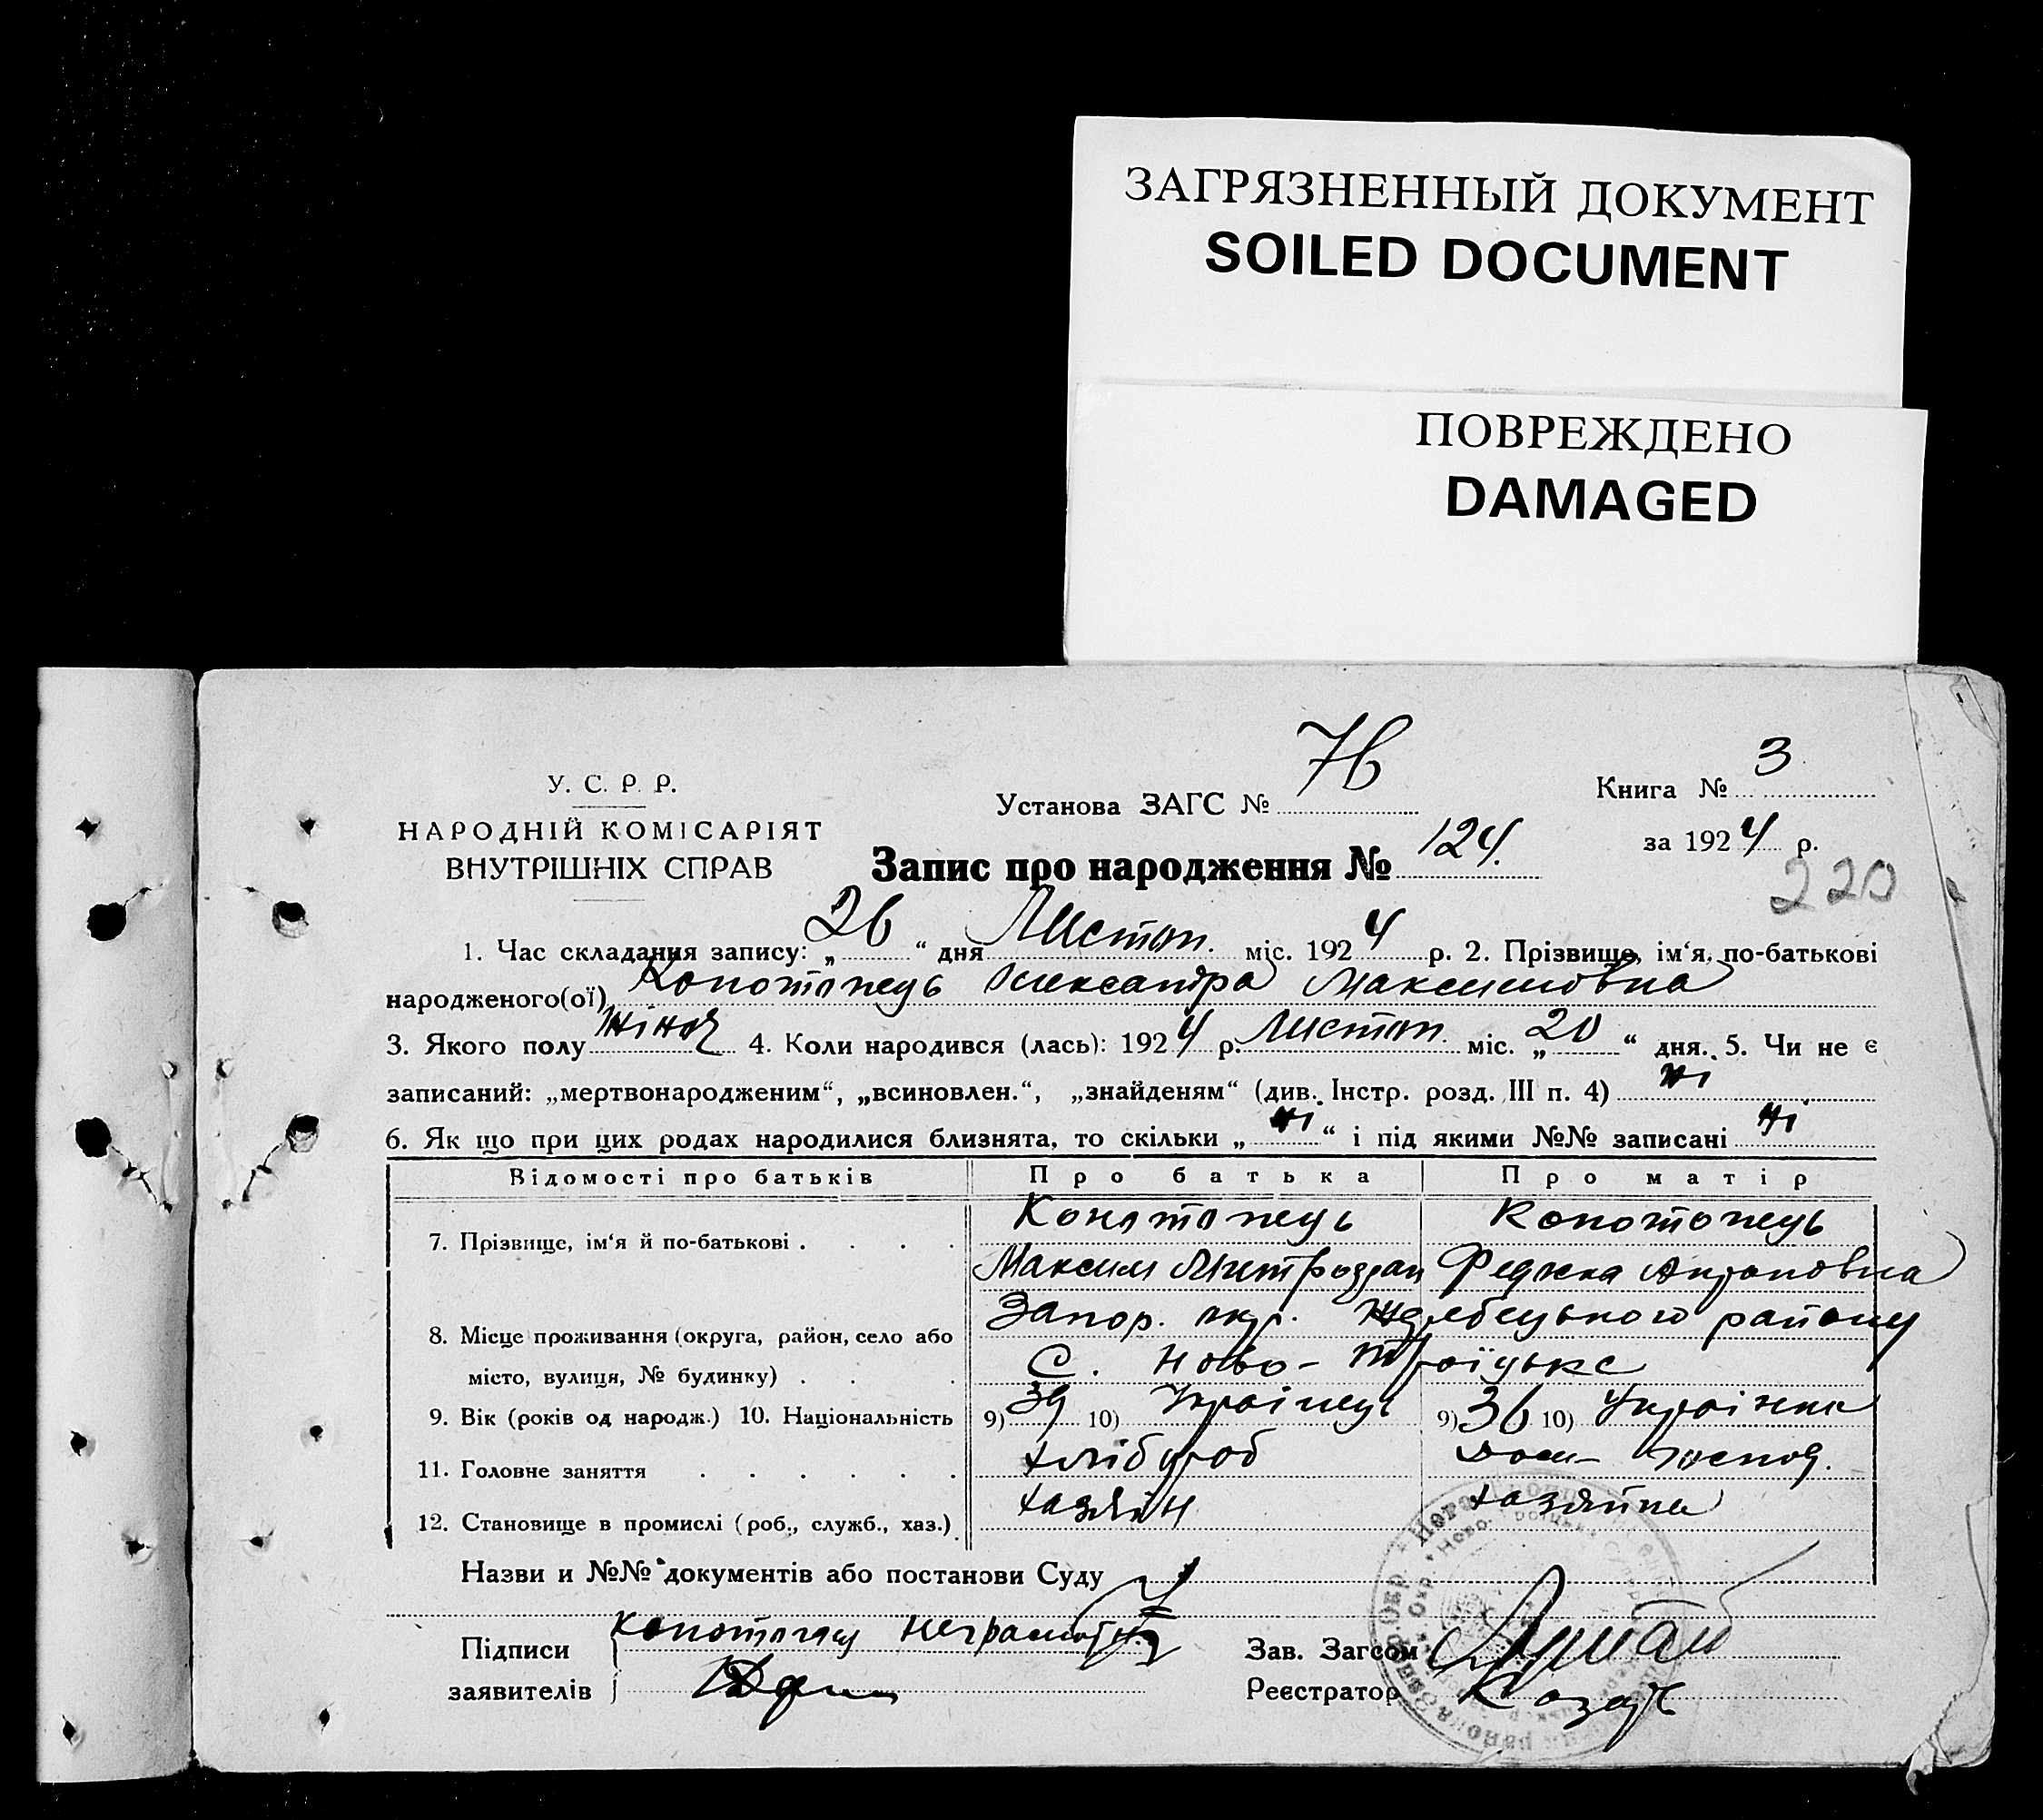 ЗАГРЯЗНЕННЫЙ ДОКУМЕНТ
SOILED DOCUMENT
ПОВРЕЖДЕНО
DAMAGED
У. С. Р. Р.
НАРОДНІЙ КОМІСАРІЯТ
ВНУТРІШНІХ СПРАВ
Установа ЗАГС № 76
Книга № 3
за 1924 р.
Запис про народження № 124.
220
1. Час складання запису: „26“ дня Листоп. міс. 1924 р. 2. Прізвище, ім‘я, по-батькові
народженого(ої) Конотопець Олександра Максимовна
3. Якого полу жіноч 4. Коли народився (лась): 1924 р. Листоп. міс. „20“ дня. 5. Чи не є
записаний: „мертвонародженим“, „всиновлен.“, „знайденям“ (див. Інстр. розд. III п. 4) ні
6. Як що при цих родах народилися близнята, то скільки „ні“ і під якими №№ записані ні
Відомості про батьків Про батька Про матір
7. Прізвище, ім‘я й по-батькові . . . . Конотопець Конотопець
Максим
8. Місце проживання (округа, район, село або Запор. окр. Жеребецького району
місто, вулиця, № будинку) . . . С. Ново-Троїцьке
9. Вік (років од народж.) 10. Національність 9) 39 10) Українець 9) 36 10) Українка
11. Головне заняття . . . . . . хлібороб дом- господ.
12. Становище в промислі (роб., служб., хаз.) . хазяін хазяйка
Назви и №№ документів або постанови Суду
Підписи
заявителів
Конотопец неграмотн
Зав. Загсом
Реєстратор Козак